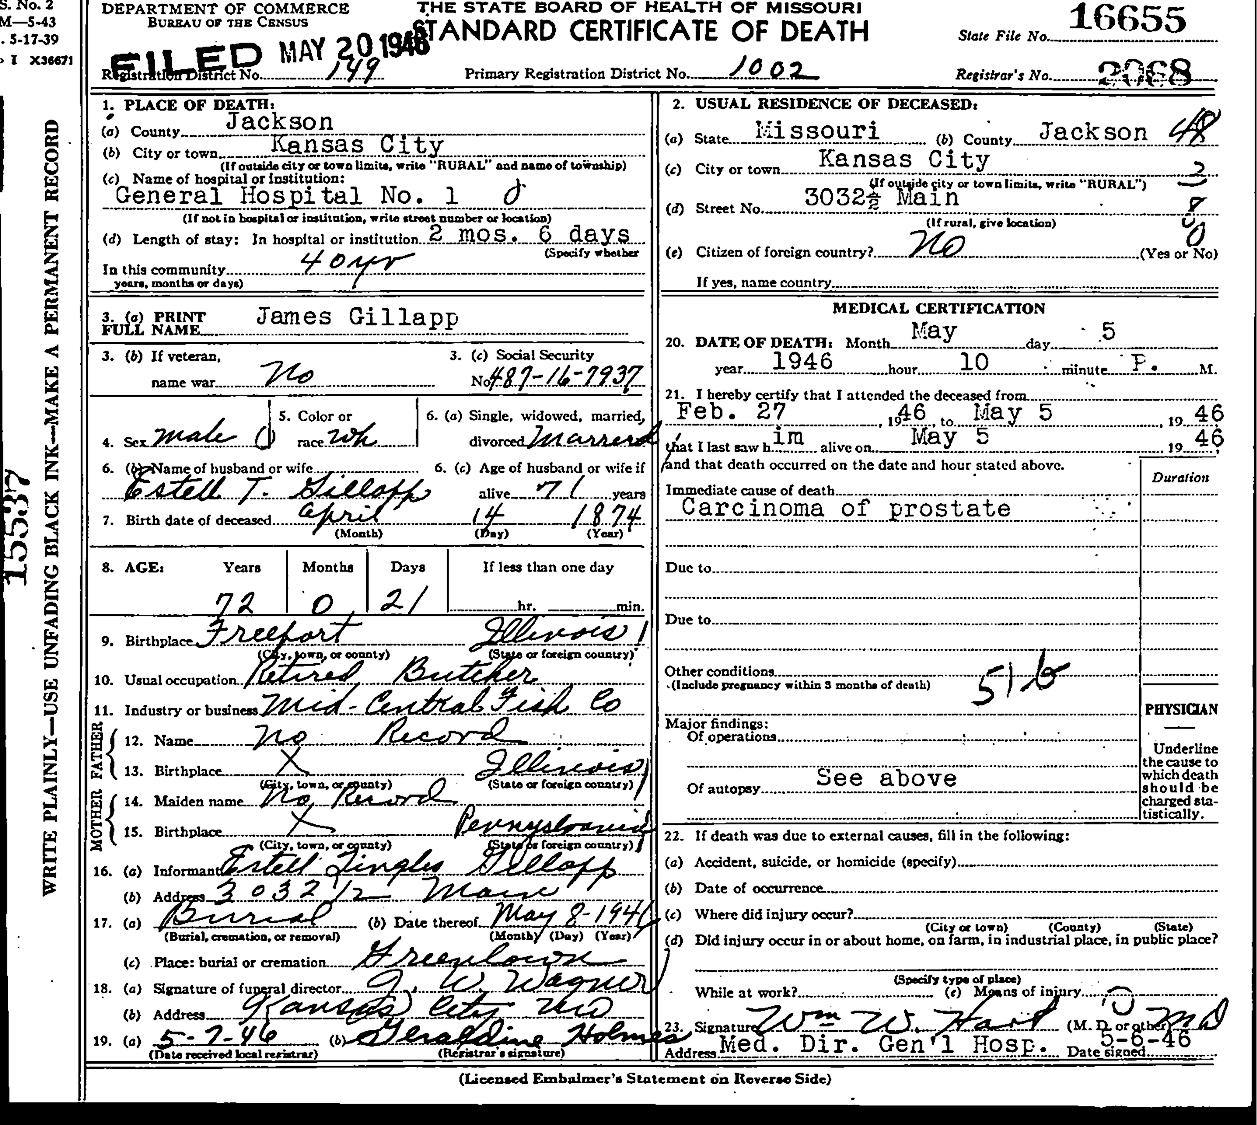 S. No. 2
M—5-43
. 5-17-39
I X36671
DEPARTMENT OF COMMERCE
BUREAU OF THE CENSUS
THE STATE BOARD OF HEALTH OF MISSOURI
STANDARD CERTIFICATE OF DEATH
State File No. 16655
FILED MAY 20 1946
Registration District No. 149
Primary Registration District No. 1002
Registrar's No. 2068
WRITE PLAINLY—USE UNFADING BLACK INK—MAKE A PERMANENT RECORD
15537
1. PLACE OF DEATH:
(a) County Jackson
(b) City or town Kansas City
(If outside city or town limits, write "RURAL" and name of township)
(c) Name of hospital or institution:
General Hospital No. 1
(If not in hospital or institution, write street number or location)
(d) Length of stay: In hospital or institution 2 mos. 6 days
(Specify whether
In this community 40 yr
years, months or days)
2. USUAL RESIDENCE OF DECEASED:
(a) State Missouri (b) County Jackson 48
(c) City or town Kansas City
(If outside city or town limits, write "RURAL")
(d) Street No. 3032½ Main
(If rural, give location)
(e) Citizen of foreign country? No (Yes or No)
If yes, name country
3. (a) PRINT FULL NAME James Gillapp
3. (b) If veteran, name war No
3. (c) Social Security No. 487-16-7937
4. Sex male
5. Color or race Wh
6. (a) Single, widowed, married, divorced Married
6. (b) Name of husband or wife
Estell T. Gillapp
6. (c) Age of husband or wife if alive 71 years
7. Birth date of deceased April 14 1874
(Month) (Day) (Year)
8. AGE: Years Months Days If less than one day
72 0 21 hr. min.
9. Birthplace Freeport Illinois
(City, town, or county) (State or foreign country)
10. Usual occupation Retired Butcher
11. Industry or business Mid-Central Fish Co
FATHER
12. Name No Record
13. Birthplace X Illinois
(City, town, or county) (State or foreign country)
MOTHER
14. Maiden name No Record
15. Birthplace X Pennysloania
(City, town, or county) (State or foreign country)
16. (a) Informant Estell Gillapp
(b) Address 3032 1/2 Main
17. (a) Burial (b) Date thereof May 8-1946
(Burial, cremation, or removal) (Month) (Day) (Year)
(c) Place: burial or cremation Greenlawn
18. (a) Signature of funeral director J. W. Wagner
(b) Address Kansas City Mo
19. (a) 5-7-46 (b) Geraldine Holmes
(Date received local registrar) (Registrar's signature)
MEDICAL CERTIFICATION
20. DATE OF DEATH: Month May day 5
year 1946 hour 10 minute P. M.
21. I hereby certify that I attended the deceased from
Feb. 27, 1946 to May 5, 1946
that I last saw him alive on May 5 1946
and that death occurred on the date and hour stated above.
Duration
Immediate cause of death
Carcinoma of prostate
Due to
Due to
Other conditions
(Include pregnancy within 3 months of death)
51b
Major findings:
Of operations
Of autopsy See above
PHYSICIAN
Underline
the cause to
which death
should be
charged sta-
tistically.
22. If death was due to external causes, fill in the following:
(a) Accident, suicide, or homicide (specify)
(b) Date of occurrence
(c) Where did injury occur?
(City or town) (County) (State)
(d) Did injury occur in or about home, on farm, in industrial place, in public place?
(Specify type of place)
While at work? (e) Means of injury
23. Signature Wm W. Hart (M. D. or other) MD
Address Med. Dir. Gen'l Hosp. Date signed 5-6-46
(Licensed Embalmer's Statement on Reverse Side)